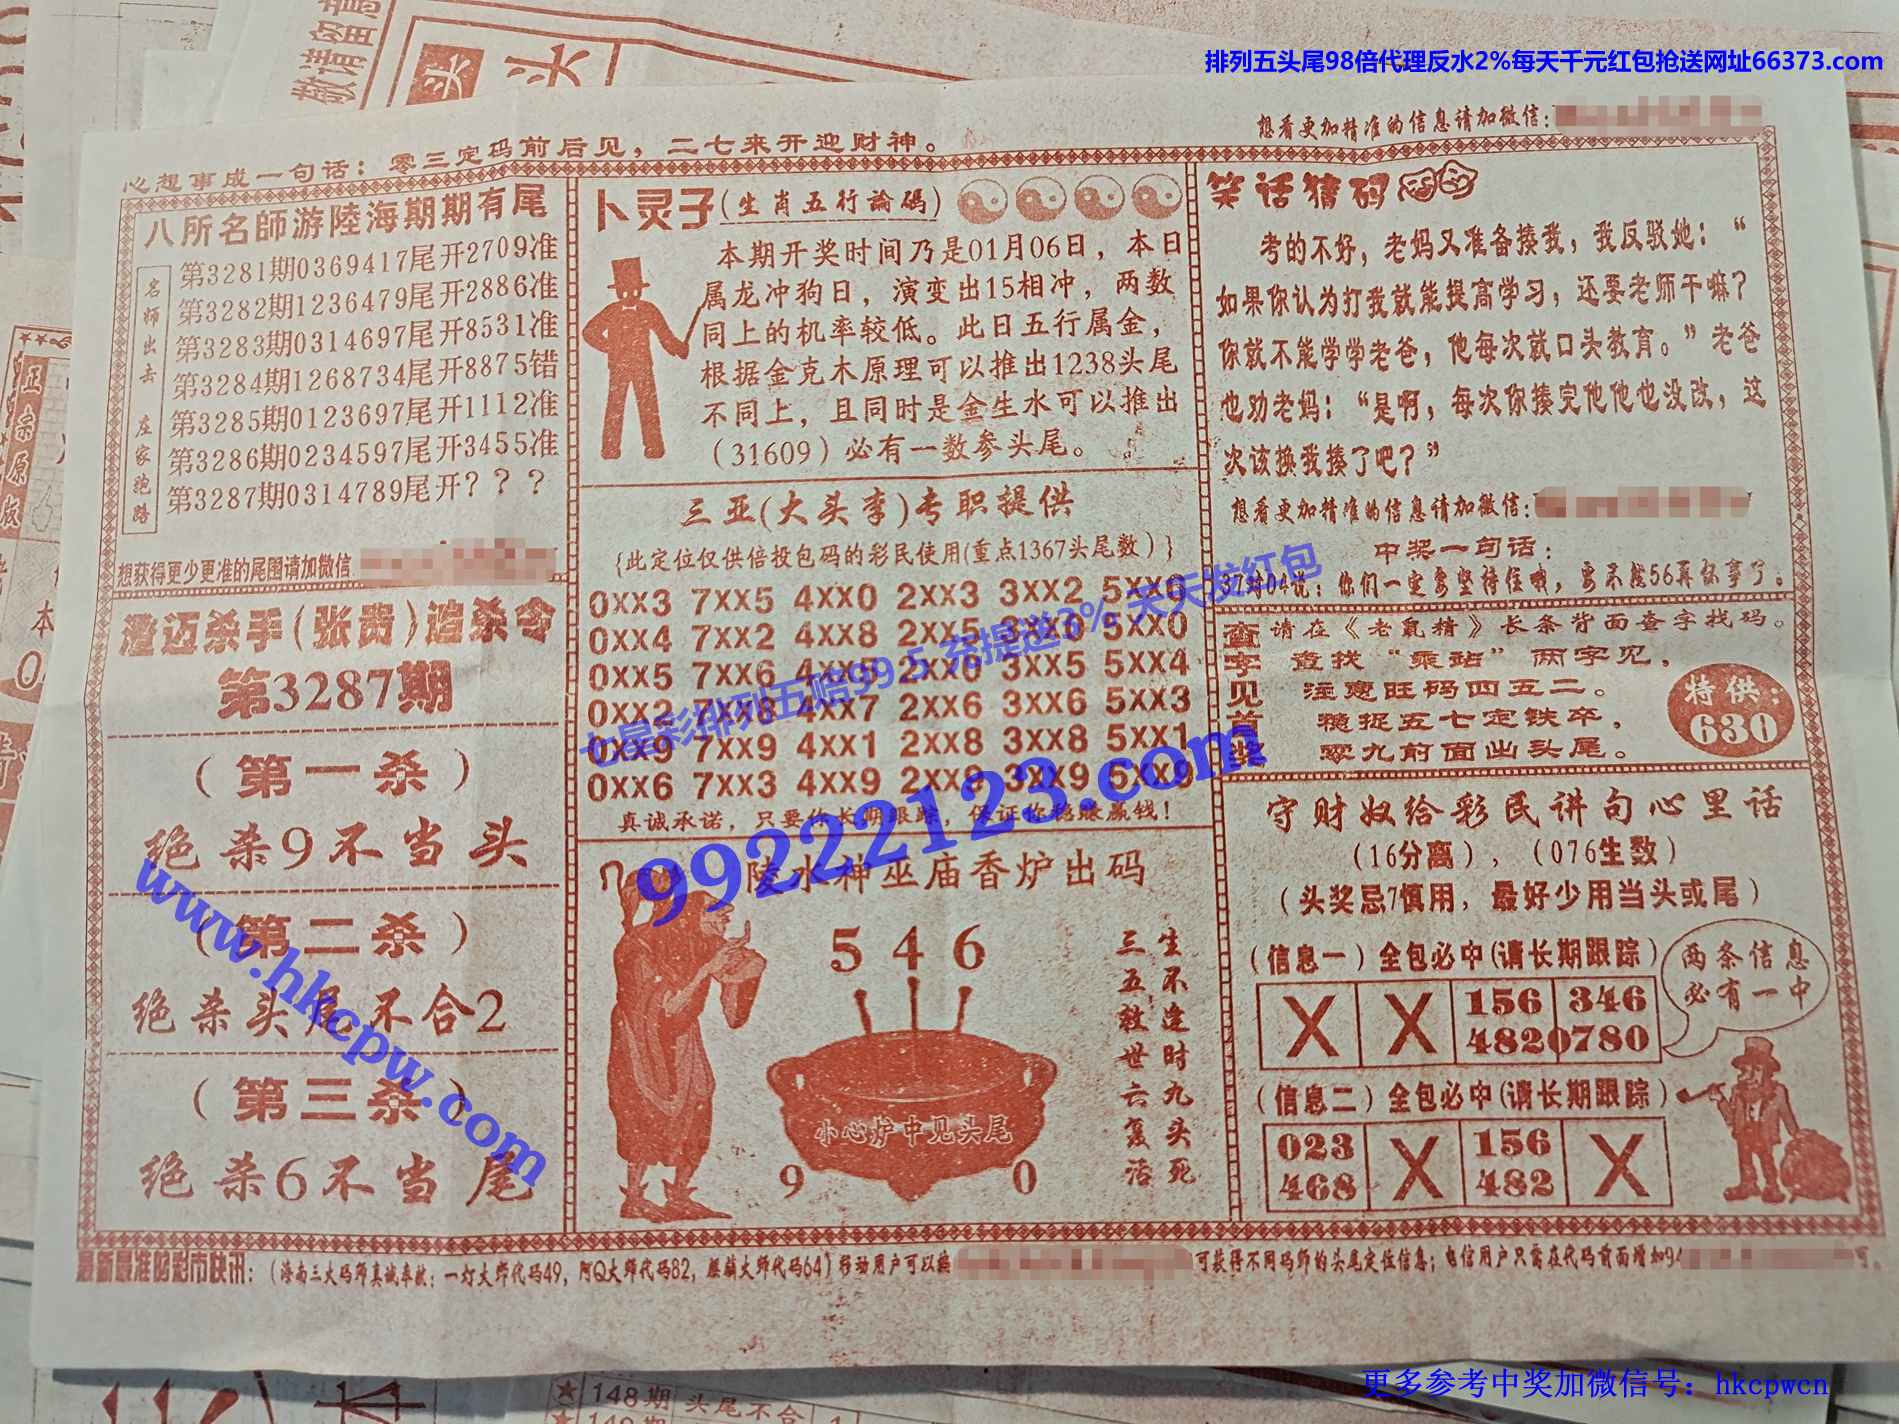 敬请留意
头
头
排列五头尾98倍代理反水2%每天千元红包抢送网址66373.com
想看更加精准的信息请加微信:
心想事成一句话：零三定码前后见，二七来开迎财神。
八所名師游陸海期期有尾
名师出击 庄家跑路
第3281期0369417尾开2709准
第3282期1236479尾开2886准
第3283期0314697尾开8531准
第3284期1268734尾开8875错
第3285期0123697尾开1112准
第3286期0234597尾开3455准
第3287期0314789尾开？？？
想获得更少更准的尾图请加微信
澄迈杀手(张贵)追杀令
第3287期
（第一杀）
绝杀9不当头
（第二杀）
绝杀头尾不合2
（第三杀）
绝杀6不当尾
卜灵子(生肖五行論碼)
本期开奖时间乃是01月06日，本日
属龙冲狗日，演变出15相冲，两数
同上的机率较低。此日五行属金，
根据金克木原理可以推出1238头尾
不同上，且同时是金生水可以推出
（31609）必有一数参头尾。
三亚(大头李)专职提供
{此定位仅供倍投包码的彩民使用(重点1367头尾数）}
0XX3 7XX5 4XX0 2XX3 3XX2 5XX6
0XX4 7XX2 4XX8 2XX5 3XX0 5XX0
0XX5 7XX6 4XX5 2XX0 3XX5 5XX4
0XX2 7XX8 4XX7 2XX6 3XX6 5XX3
0XX9 7XX9 4XX1 2XX8 3XX8 5XX1
0XX6 7XX3 4XX9 2XX9 3XX9 5XX9
真诚承诺，只要你长期跟踪，保证你稳赚赢钱！
七星彩排列五赔99.5 充提送3% 天天发红包
99222123.com
www.hkcpw.com
陵水神巫庙香炉出码
5 4 6
小心炉中见头尾
9 0
生不逢时九头死
三五救世六复活
笑话猜码
考的不好，老妈又准备揍我，我反驳她：“
如果你认为打我就能提高学习，还要老师干嘛？
你就不能学学老爸，他每次就口头教育。”老爸
也劝老妈：“是啊，每次你揍完他他也没改，这
次该换我揍了吧？”
想看更加精准的信息请加微信:
中奖一句话：
37对04说：你们一定要坚持住哦，要不找56再你事了。
查字见首奖
请在《老鼠精》长条背面查字找码。
查找“乘站”两字见，
注意旺码四五二。
稳捉五七定铁卒，
零九前面出头尾。
特供：
630
守财奴给彩民讲句心里话
（16分离），（076生数）
（头奖忌7慎用，最好少用当头或尾）
（信息一）全包必中(请长期跟踪)
X X 156 346
4820780
两条信息
必有一中
（信息二）全包必中(请长期跟踪)
023 X 156 X
468 482
最新最准的彩市快讯：（海南三大码师真诚奉献：一灯大师代码49，阿Q大师代码82，麒麟大师代码64）移动用户可以编
可获得不同码师的头尾定位信息；电信用户只需在代码前面增加94
可。
正宗原版
148期 头尾不合
更多参考中奖加微信号：hkcpwcn